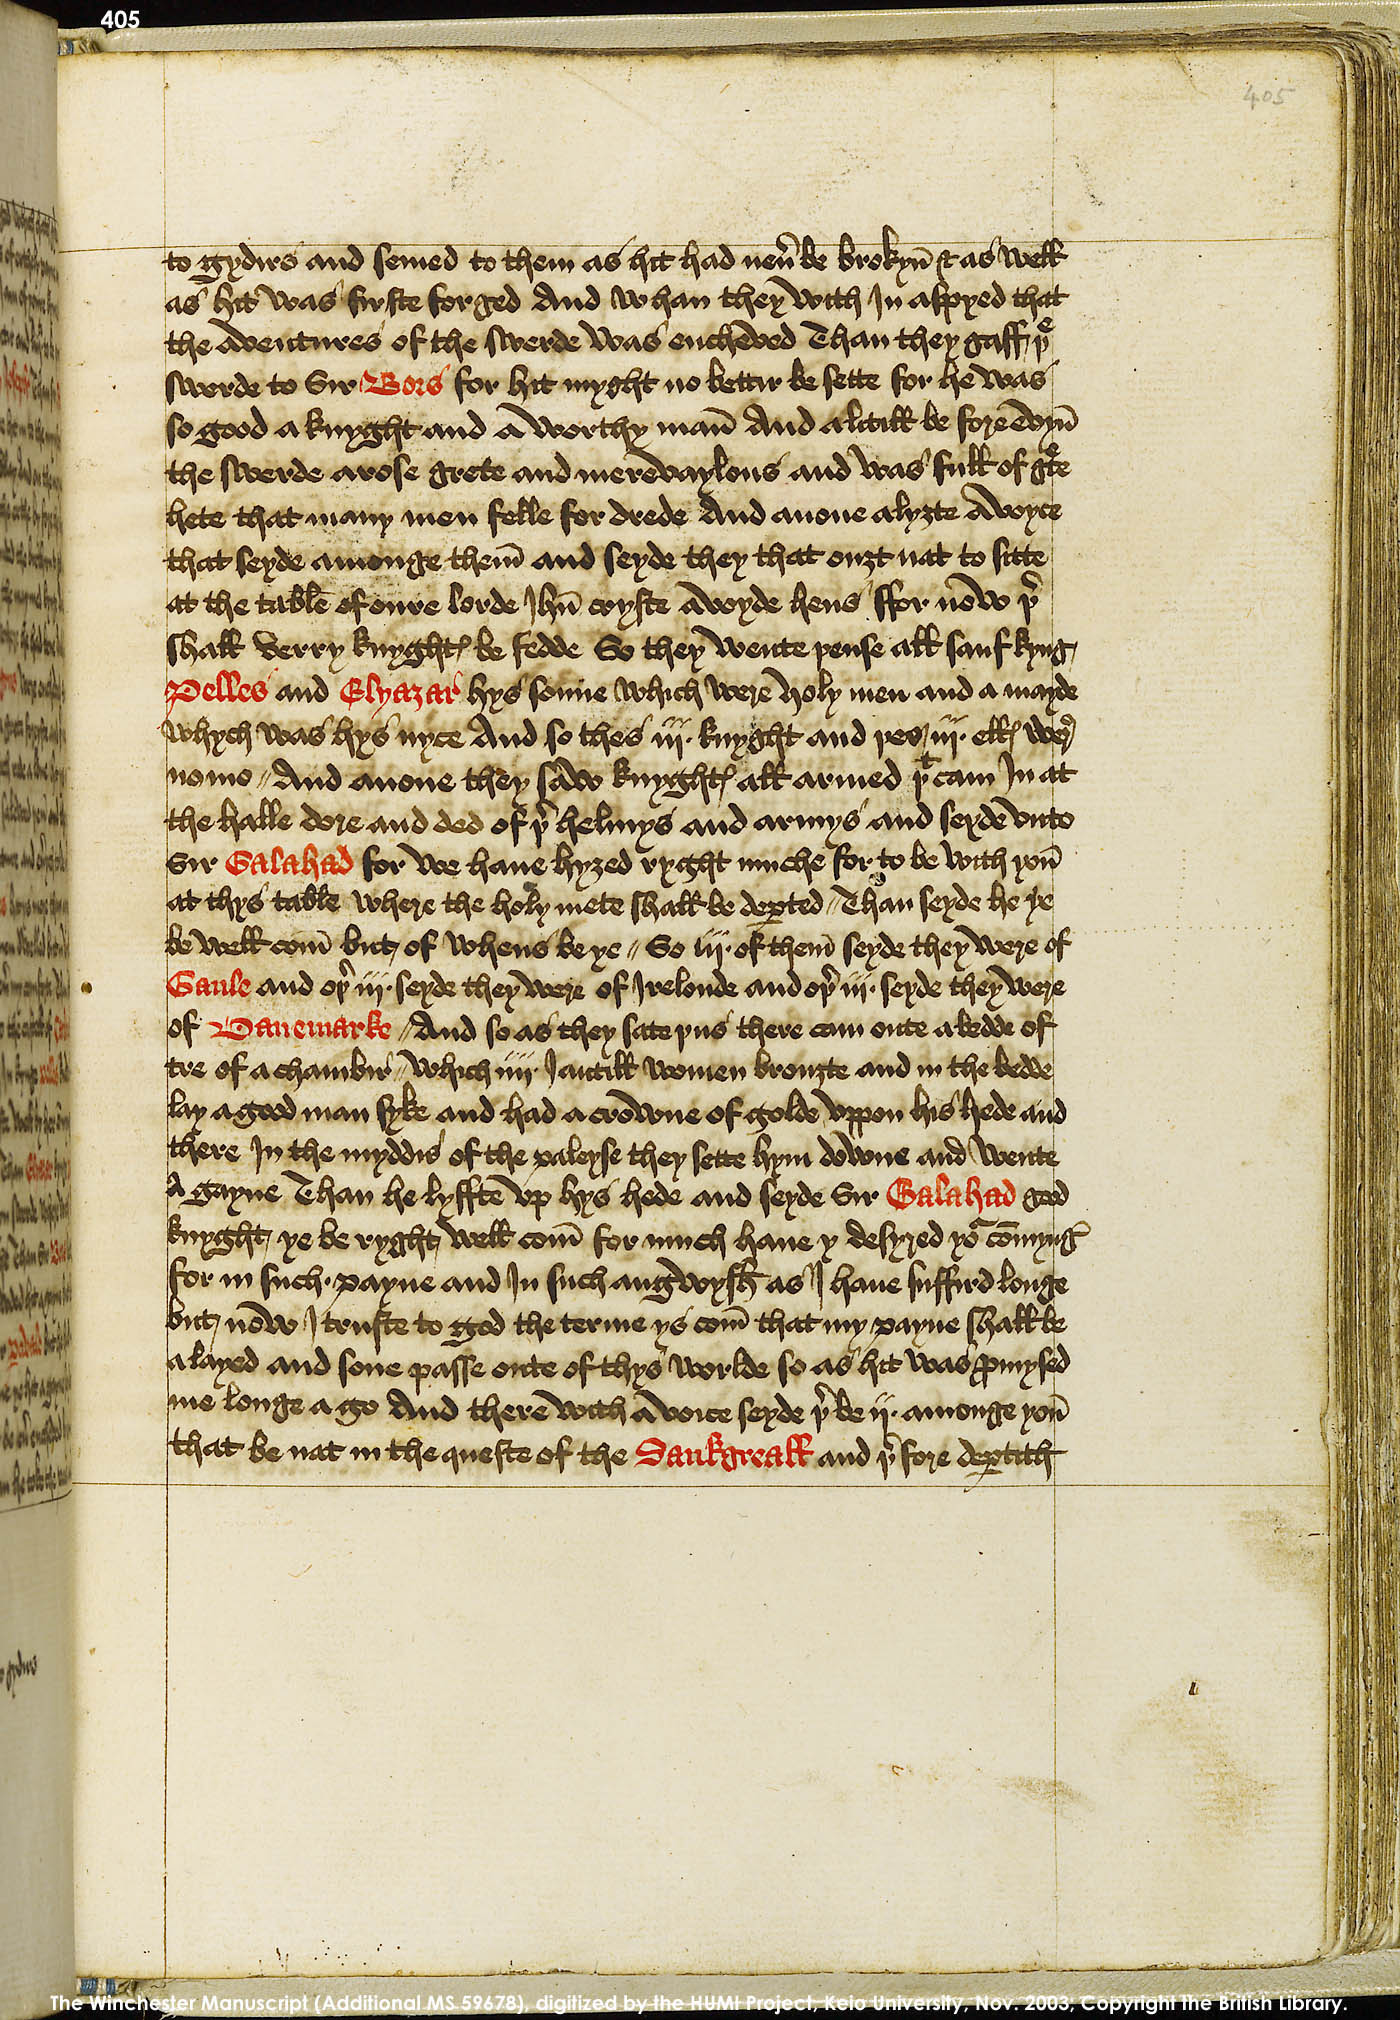 405
405
to gydirs and semed to them as hit had neuͬ be brokyn̄ & as well
as hit was firste forged And whan they with In aspyed that
the aventures of the swerde was encheved Than they gaff þͤ
swerde to Sir Bors for hit myght no bettir be sette for he was
so good a knyght and a worthy man̄ And a litill be fore evyn̄
the swerde arose grete and merevaylous and was full of gͬte
hete that many men felle for drede And anone alyzte a voyce
that seyde amonge them̄ and seyde they that ouzt nat to sitte
at the table of oure lorde Jhū cryste avoyde hens ffor now þͬ
shall verry knyghtꝭ be fedde So they wente þense all sauf kyng
Pelles and Elyazar hys sonne which were holy men and a mayde
whych was hys nyce And so thes iij. knyght and þes iij. ellꝭ weͬ
no mo // And anone they saw knyghtꝭ all armed þͭ cam In at
the halle dore and ded of þͬ helmys and armys and seyde vnto
Sir Galahad for we haue hyzed ryght muche for to be with you̅
at thys table where the holy mete shall be deꝑted // Than seyde he ye
be well com̄ but of whens be ye // So iij. of them̄ seyde they were of
Gaule and oþͬ iij. seyde they were of Irelonde and oþͬ iij. seyde they were
of Danemarke // And so as they sate þus there cam oute a bedde of
tre of a chambir // which iiij. Jantill women brouzte and in the bedde
lay a good man syke and had a crowne of golde vppon his hede and
there In the myddis of the paleyse they sette hym downe and wente
A gayne Than he lyffte vp hys hede and seyde Sir Galahad good
knyght ye be ryght well com̄ for much haue y desyred yoͬ comyng
for in such payne and In such angwysh as I haue suffird longe
but now I truste to god the terme ys com̄ that my payne shall be
a layed and sone passe oute of thys worlde so as hit was ꝓmysed
me longe a go And there with a voice seyde þͬ be ij. amonge you̅
that be nat in the queste of the Sankgreall and þͬ fore deꝑtith
The Winchester Manuscript (Additional MS 59678), digitized by the HUMI Project, Keio University, Nov. 2003; Copyright the British Library.